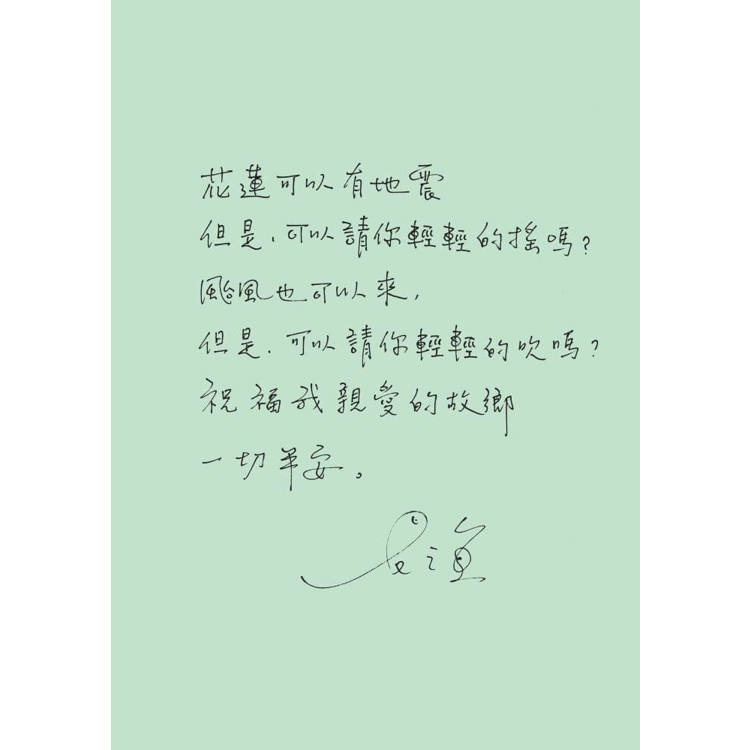 花蓮可以有地震
但是，可以請你輕輕的搖嗎？
颱風也可以來，
但是，可以請你輕輕的吹嗎？
祝福我親愛的故鄉
一切平安。